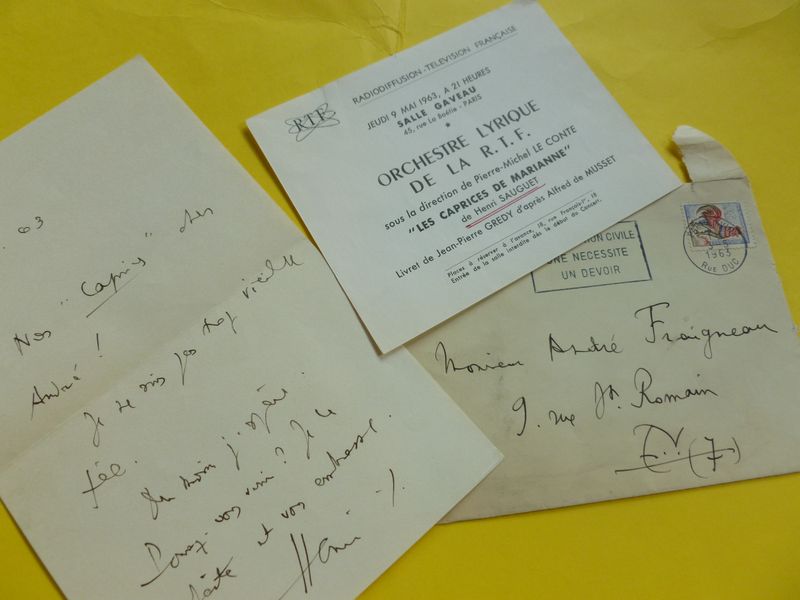 63
Nos "Caprices" cher
André !
Je ne suis pas trop vieille
fée.
Du moins j'espère.
Pouvez-vous venir? Je le
et vous embrasse.
Henri
RADIODIFFUSION-TÉLÉVISION FRANÇAISE
RTF
JEUDI 9 MAI 1963, A 21 HEURES
SALLE GAVEAU
45, rue La Boëtie - PARIS
*
ORCHESTRE LYRIQUE
DE LA R.T.F.
sous la direction de Pierre-Michel LE CONTE
"LES CAPRICES DE MARIANNE"
de Henri SAUGUET
Livret de Jean-Pierre GREDY d'après Alfred de MUSSET
Places à réserver à l'avance, 18, rue François-Iᵉʳ, 18
Entrée de la salle interdite dès le début du Concert.
ION CIVILE
UNE NECESSITE
UN DEVOIR
1963
Rue DUC
Monsieur André Fraigneau
9. rue St. Romain
E.V. (7)